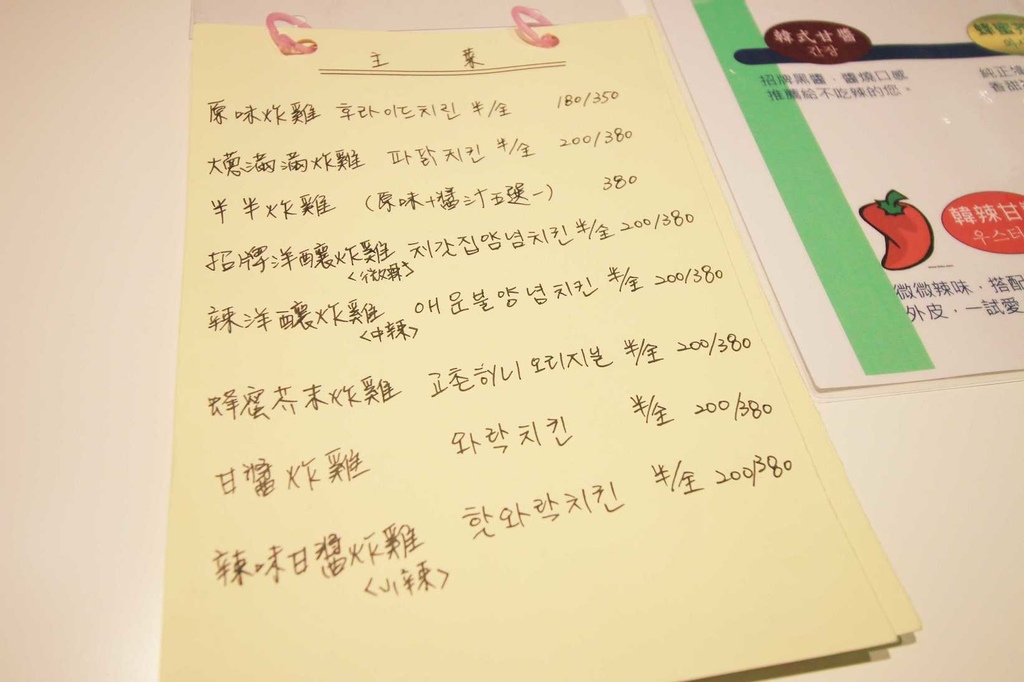 主 菜
原味炸雞 후라이드치킨 半/全 180/350
大蔥滿滿炸雞 파닭치킨 半/全 200/380
半半炸雞 (原味+醬汁五選一) 380
招牌洋釀炸雞 처갓집양념치킨 半/全 200/380
<微辣>
辣洋釀炸雞 매운불양념치킨 半/全 200/380
<中辣>
蜂蜜芥末炸雞 교촌허니오리지널 半/全 200/380
甘醬炸雞 와락치킨 半/全 200/380
辣味甘醬炸雞 핫와락치킨 半/全 200/380
<小辣>
韓式甘醬
간장
招牌黑醬，醬燒口感
推薦給不吃辣的您。
蜂蜜芥
純正濃
香甜
韓辣甘
우스터
微微辣味，搭配
外皮，一試愛